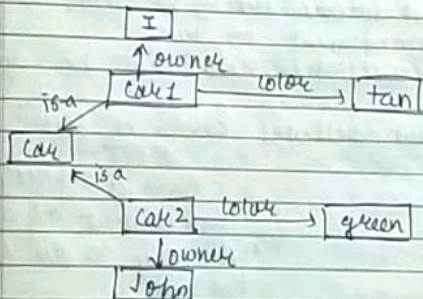 I
owner
Car1 color tan
is-a
Car
is a
Car2 color green
owner
John